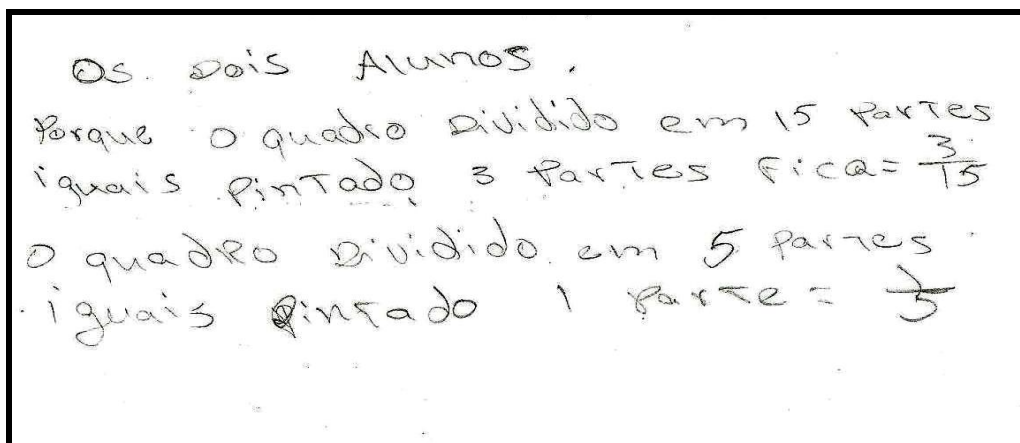 Os. Dois Alunos.
Porque o quadro Dividido em 15 Partes
iguais Pintado 3 Partes Fica = 3/15
O quadro Dividido em 5 Partes
iguais Pintado 1 Parte = 1/5